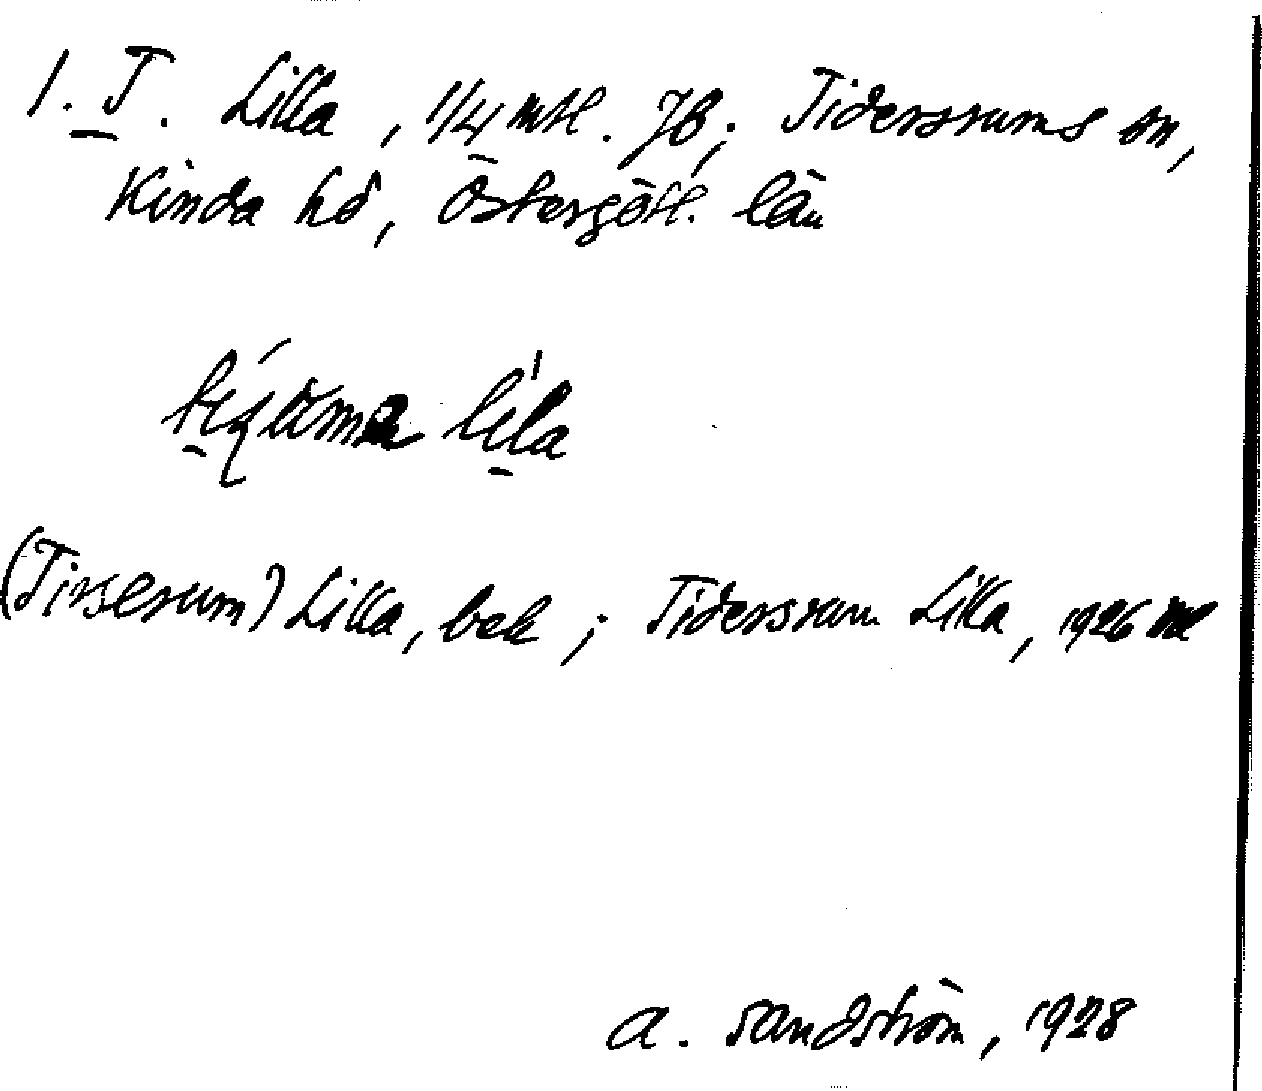 1. T. Lilla, 1/4 mtl. Jb; Tidersrums sn,
Kinda hd, Östergötl. län
lila
(Tirserum) Lilla, bek; Tidersrum Lilla, 1926
A. Sandström, 1928